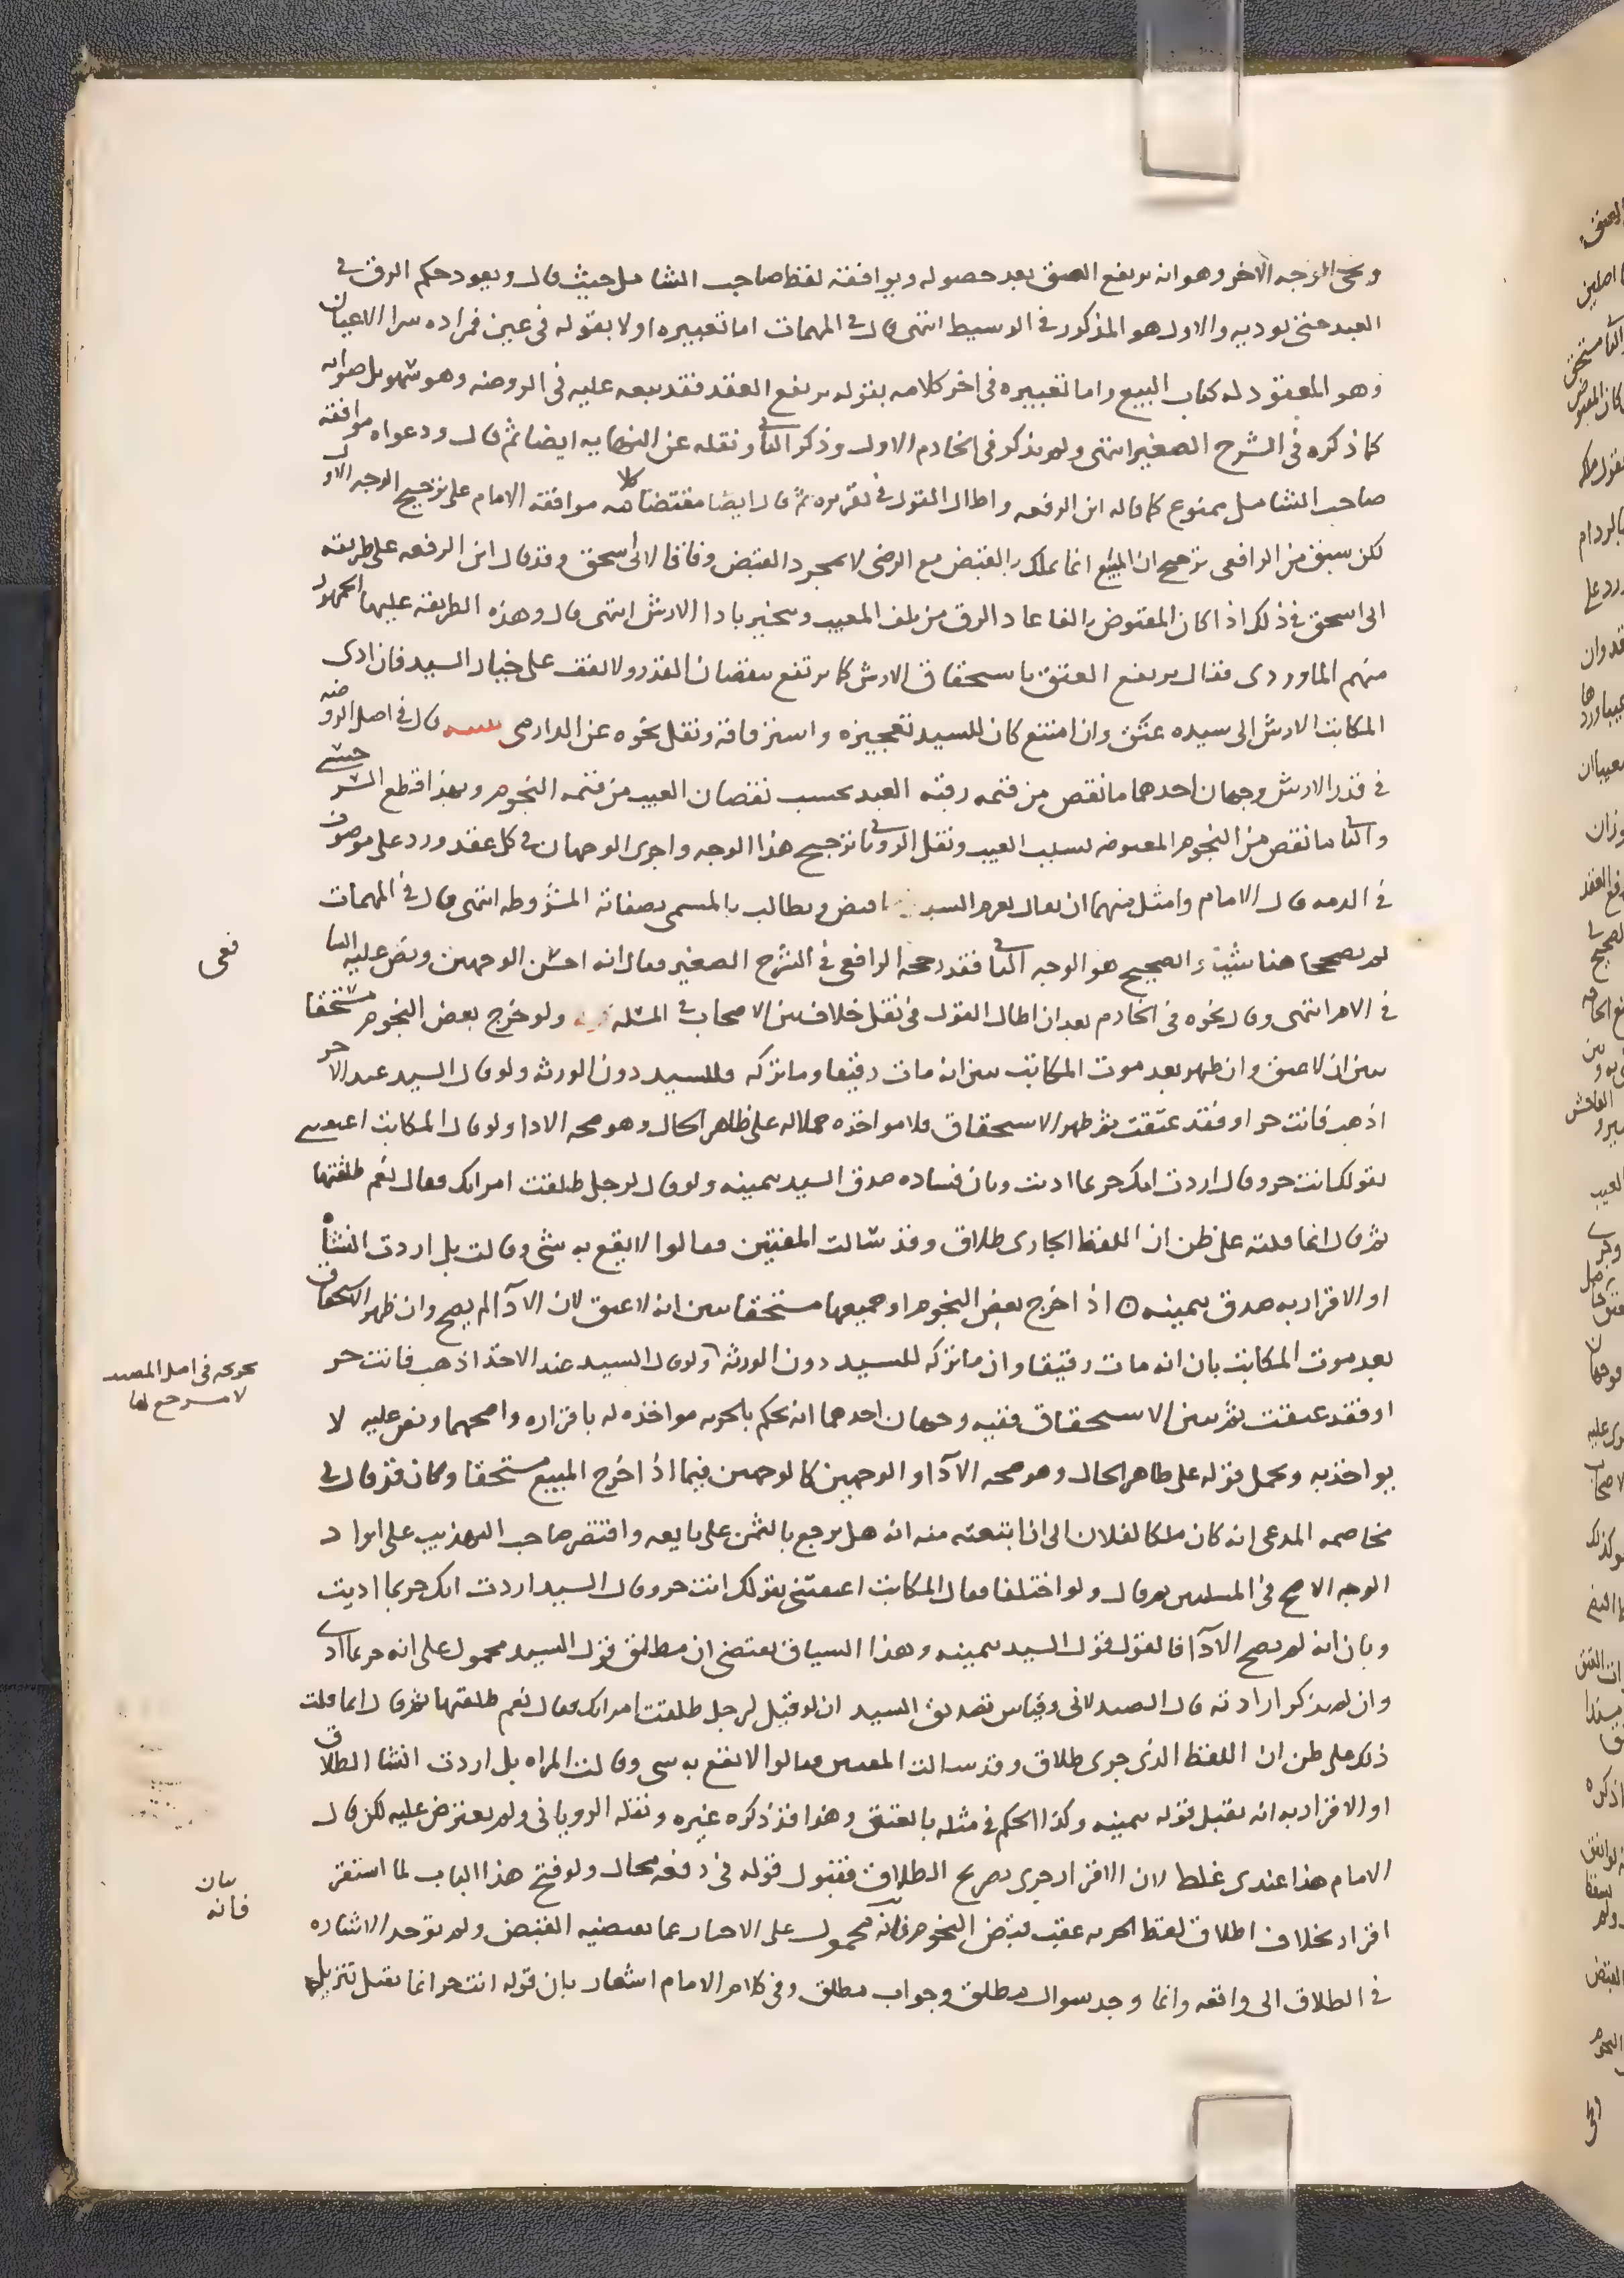 وعلى الوجه الاخر وهو انه يرتفع العتق بعد حصوله ويوافقه لفظ صاحب الشامل حيث قال ويعود حكم الرق في
العبد حتى يوديه والاول هو المذكور في الوسيط انتهى قال في المهمات اما تعبيره اولا بقوله في عين فمراده شرا الاعيان
وهو المعقود له كتاب البيع واما تعبيره في اخر كلامه بقوله يرتفع العقد فقد تبعه عليه في الروضه وهو سهو بل صوابه
كما ذكره في الشرح الصغير انتهى ولم يذكر في الخادم الاول وذكر الثاني ونقله عن النهايه ايضا ثم قال ودعواه موافقة
صاحب الشامل ممنوع كما قاله ابن الرفعه واطال القول في تقريره ثم قال ايضا مقتضا كلامه موافقة الامام على ترجيح الوجه الاول
لكن سبق من الرافعي ترجيح ان المبيع انما يملك بالقبض مع الرضى لا بمجرد القبض وفاقا لابي اسحق وقد قال ابن الرفعه على طريقه
ابي اسحق في ذلك اذا كان المقبوض بالغا عاد الرق من تلف المعيب ويتخير بادا الارش انتهى قال وهذه الطريقه عليها الجمهور
منهم الماوردي فقال يرتفع العتق باستحقاق الارش كما يرتفع بنقصان القدر ولا يقف على خيار السيد فان ادى
المكاتب الارش الى سيده عتق وان امتنع كان للسيد تعجيزه واسترقاقه ونقل نحوه عن الدارمي تنبيه قال في اصل الروضه
في قدر الارش وجهان احدهما ما نقص من قيمه رقبه العبد بحسب نقصان العيب من قيمه النجوم وبهذا قطع السرخسي
والثاني ما نقص من النجوم المقبوضه بسبب العيب ونقل الروياني ترجيح هذا الوجه واجرى الوجهان في كل عقد ورد على موصوف
في الذمه قال الامام وامثل منهما ان يقال يغرم السيد ما قبض ويطالب بالمسمى بصفاته المشروطه انتهى قال في المهمات
لم يصحح هنا شيئا والصحيح هو الوجه الثاني فقد رجحه الرافعي في الشرح الصغير فقال انه احسن الوجهين ونص عليه الشافعي
في الام انتهى وقال نحوه في الخادم بعد ان اطال القول في نقل خلاف بين الاصحاب في المسله قوله ولو خرج بعض النجوم مستحقا
تبين ان لا عتق وان ظهر بعد موت المكاتب تبين انه مات رقيقا وما تركه فللسيد دون الورثه ولو قال السيد عند الاخذ
اذهب فانت حر او فقد عتقت ثم ظهر الاستحقاق فلا مواخذه حملا له على ظاهر الحال وهو صحه الادا ولو قال المكاتب اعتقتني
بقولك انت حر وقال اردت انك حر بما اديت وبان فساده صدق السيد بيمينه ولو قال لرجل طلقت امراتك فقال نعم طلقتها
ثم قال انما قلته على ظن ان اللفظ الجاري طلاق وقد سالت المفتين فقالوا لا يقع به شي وقالت بل اردت انشاء
او الاقرار به صدق بيمينه ه اذا خرج بعض النجوم او جميعها مستحقا تبين انه لا عتق لان الاداء لم يصح وان ظهر الاستحقاق
بعد موت المكاتب بان انه مات رقيقا وان ما تركه للسيد دون الورثه ولو قال السيد عند الاخذ اذهب فانت حر
او فقد عتقت ثم تبين الاستحقاق ففيه وجهان احدهما انه يحكم بالحريه مواخذه له باقراره واصحهما ونص عليه لا
يواخذ به ويحمل قوله على ظاهر الحال وهو صحه الاداء والوجهين كالوجهين فيما اذا خرج المبيع مستحقا وكان قد قال في
مخاصمه المدعي انه كان ملكا لفلان الى ان ابتعته منه انه هل يرجع بالثمن على بايعه واقتصر صاحب التهذيب على ايراد
الوجه الاصح في المسلتين ثم قال ولو اختلفا فقال المكاتب اعتقتني بقولك انت حر وقال السيد اردت انك حر بما اديت
وبان انه لم يصح الاداء فالقول قول السيد بيمينه وهذا السياق يقتضي ان مطلق قول السيد محمول على انه حر بما ادى
وان لم يذكر ارادته قال الصيدلاني وقياس تصديق السيد ان لو قيل لرجل طلقت امراتك فقال نعم طلقتها ثم قال انما قلت
ذلك على ظن ان اللفظ الذي جرى طلاق وقد سالت المفتين فقالوا لا يقع به شي وقالت المراه بل اردت انشا الطلاق
او الاقرار به انه يقبل قوله بيمينه وكذا الحكم في مثله بالعتق وهذا قد ذكره غيره ونقله الروياني ولم يعترض عليه لكن قال
الامام هذا عندي غلط لان الاقرار جرى بصريح الطلاق فقبول قوله في دفعه محال ولو فتح هذا الباب لما استقر
اقرار بخلاف اطلاق لفظ الحريه عقيب قبض النجوم فانه محمول على الاخبار عما يقتضيه القبض ولم توجد الاشاره
في الطلاق الى واقعه وانما وجد سوال مطلق وجواب مطلق وفي كلام الامام اشعار بان قوله انت حر انما يقبل تنزيله
فعى
لا مرجع لها
بيان
فانه